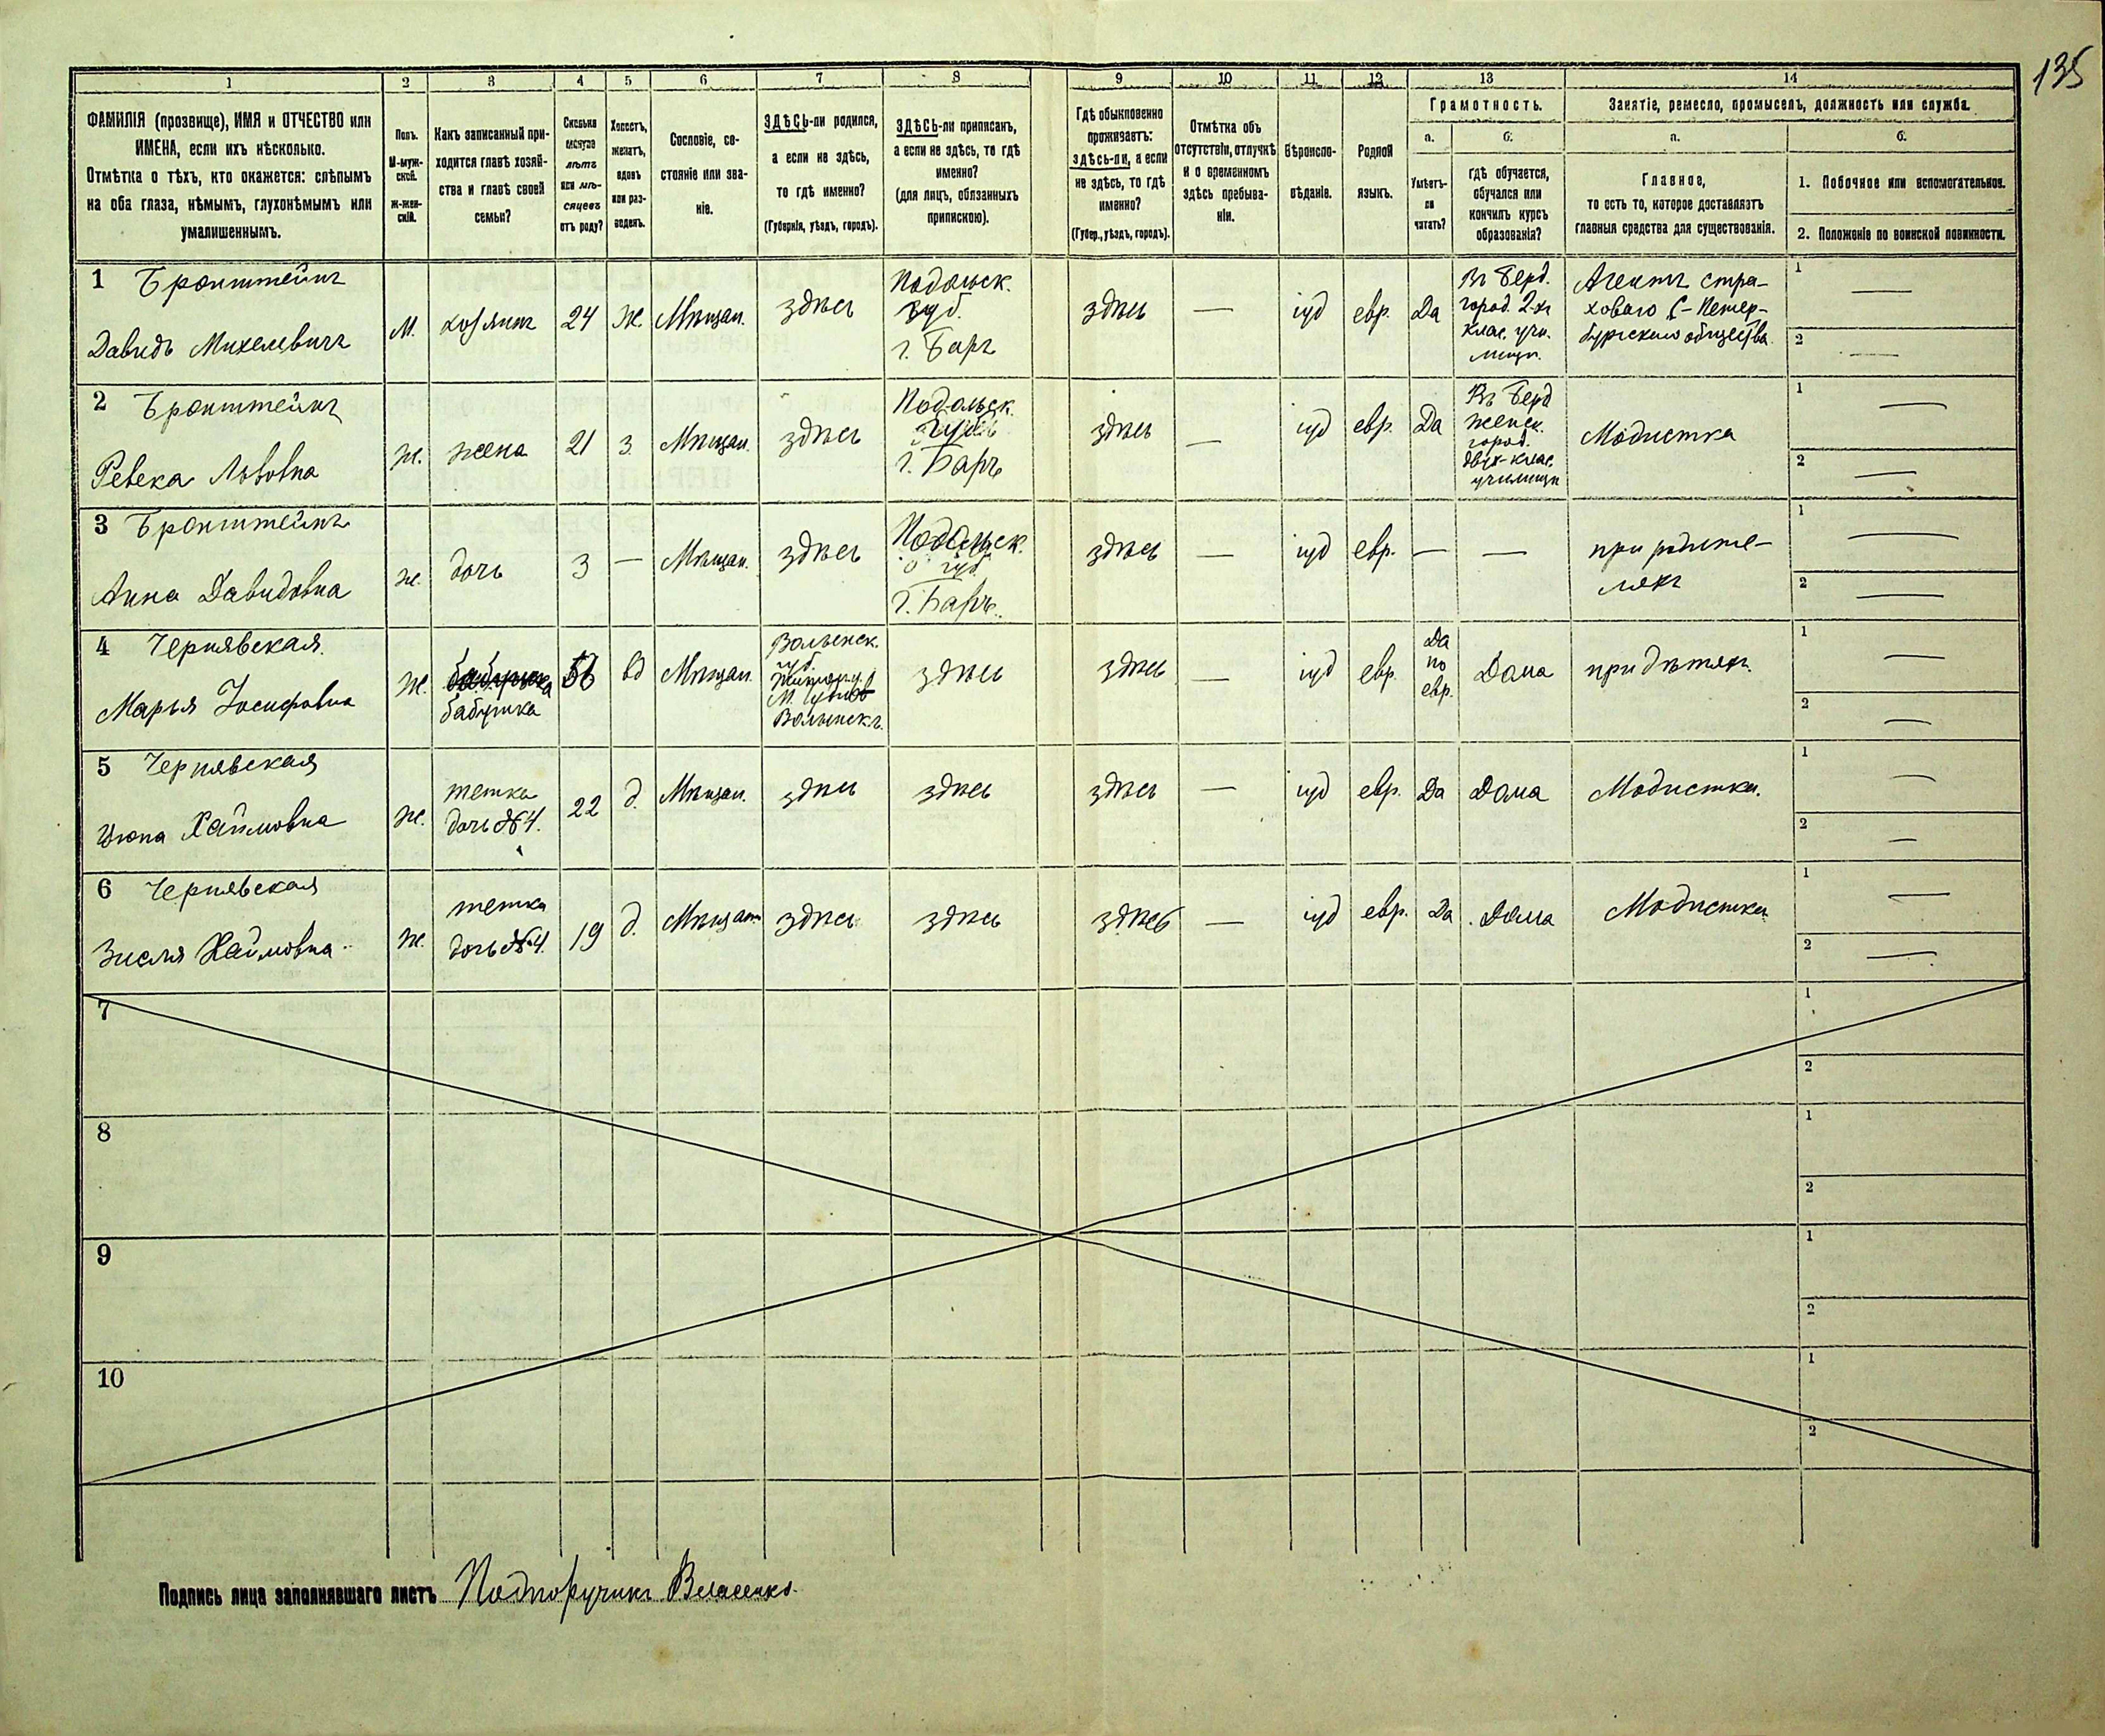 135
1
2
3
4
5
6
7
8
9
10
11
12
13
14
ФАМИЛІЯ (прозвище), ИМЯ и ОТЧЕСТВО или
ИМЕНА, если ихъ нѣсколько.
Отмѣтка о тѣхъ, кто окажется: слѣпымъ
на оба глаза, нѣмымъ, глухонѣмымъ или
умалишеннымъ.
Полъ.
М-муж-
ской.
Ж-жен-
скій.
Какъ записанный при-
ходится главѣ хозяй-
ства и главѣ своей
семьи?
Сколько
минуло
лѣтъ
или мѣ-
сяцевъ
отъ роду?
Холостъ,
женатъ,
вдовъ
или раз-
веденъ.
Сословіе, со-
стояніе или зва-
ніе.
ЗДѢСЬ-ли родился,
а если не здѣсь,
то гдѣ именно?
(Губернія, уѣздъ, городъ).
ЗДѢСЬ-ли приписанъ,
а если не здѣсь, то гдѣ
именно?
(для лицъ, обязанныхъ
припискою).
Гдѣ обыкновенно
проживаетъ:
здѣсь-ли, а если
не здѣсь, то гдѣ
именно?
(Губер., уѣздъ, городъ).
Отмѣтка объ
отсутствіи, отлучкѣ
и о временномъ
здѣсь пребыва-
ніи.
Вѣроиспо-
вѣданіе.
Родной
языкъ.
Грамотность.
а.
б.
Умѣетъ-
ли
читать?
гдѣ обучается,
обучался или
кончилъ курсъ
образованія?
Занятіе, ремесло, промыселъ, должность или служба.
а.
б.
Главное,
то есть то, которое доставляетъ
главныя средства для существованія.
1. Побочное или вспомогательное.
2. Положеніе по воинской повинности.
1 Бронштейнъ
Давидъ Михелевичъ
М.
хозяинъ
24
Ж.
Мѣщан.
здѣсь
Подольск.
губ.
г. Баръ
здѣсь
—
іуд
евр.
Да
Въ Берд.
город. 2-хъ
клас. учи-
лищѣ.
Агентъ стра-
ховаго С-Петер-
бургскаго общества
1 —
2 —
2 Бронштейнъ
Ревека Львовна
Ж.
жена
21
З.
Мѣщан.
здѣсь
Подольск.
губ.
г. Баръ
здѣсь
—
іуд
евр.
Да
Въ Берд
женск.
город.
двух-клас.
училищѣ
Модистка
1 —
2 —
3 Бронштейнъ
Анна Давидовна
Ж.
дочь
3
—
Мѣщан.
здѣсь
Подольск.
губ
г. Баръ.
здѣсь
—
іуд
евр.
—
—
при родите-
ляхъ
1 —
2 —
4 Чернявская.
Марья Іосифовна
Ж.
бабушка
56
вд
Мѣщан.
Волынск.
губ.
Волынскъ.
здѣсь
здѣсь
—
іуд
евр.
Да
по
евр.
Дома
при дѣтяхъ.
1 —
2 —
5 Чернявская
Хаймовна
Ж.
тетка
дочь №4.
22
д.
Мѣщан.
здѣсь
здѣсь
здѣсь
—
іуд
евр.
Да
Дома
Модистка.
1 —
2 —
6 Чернявская
Зисля Хаймовна
Ж.
тетка
дочь №4.
19
д.
Мѣщан
здѣсь
здѣсь
здѣсь
—
іуд
евр.
Да
Дома
Модистка
1 —
2 —
7
1
2
8
1
2
9
1
2
10
1
2
Подпись лица заполнявшаго листъ Подпоручикъ Власенко.